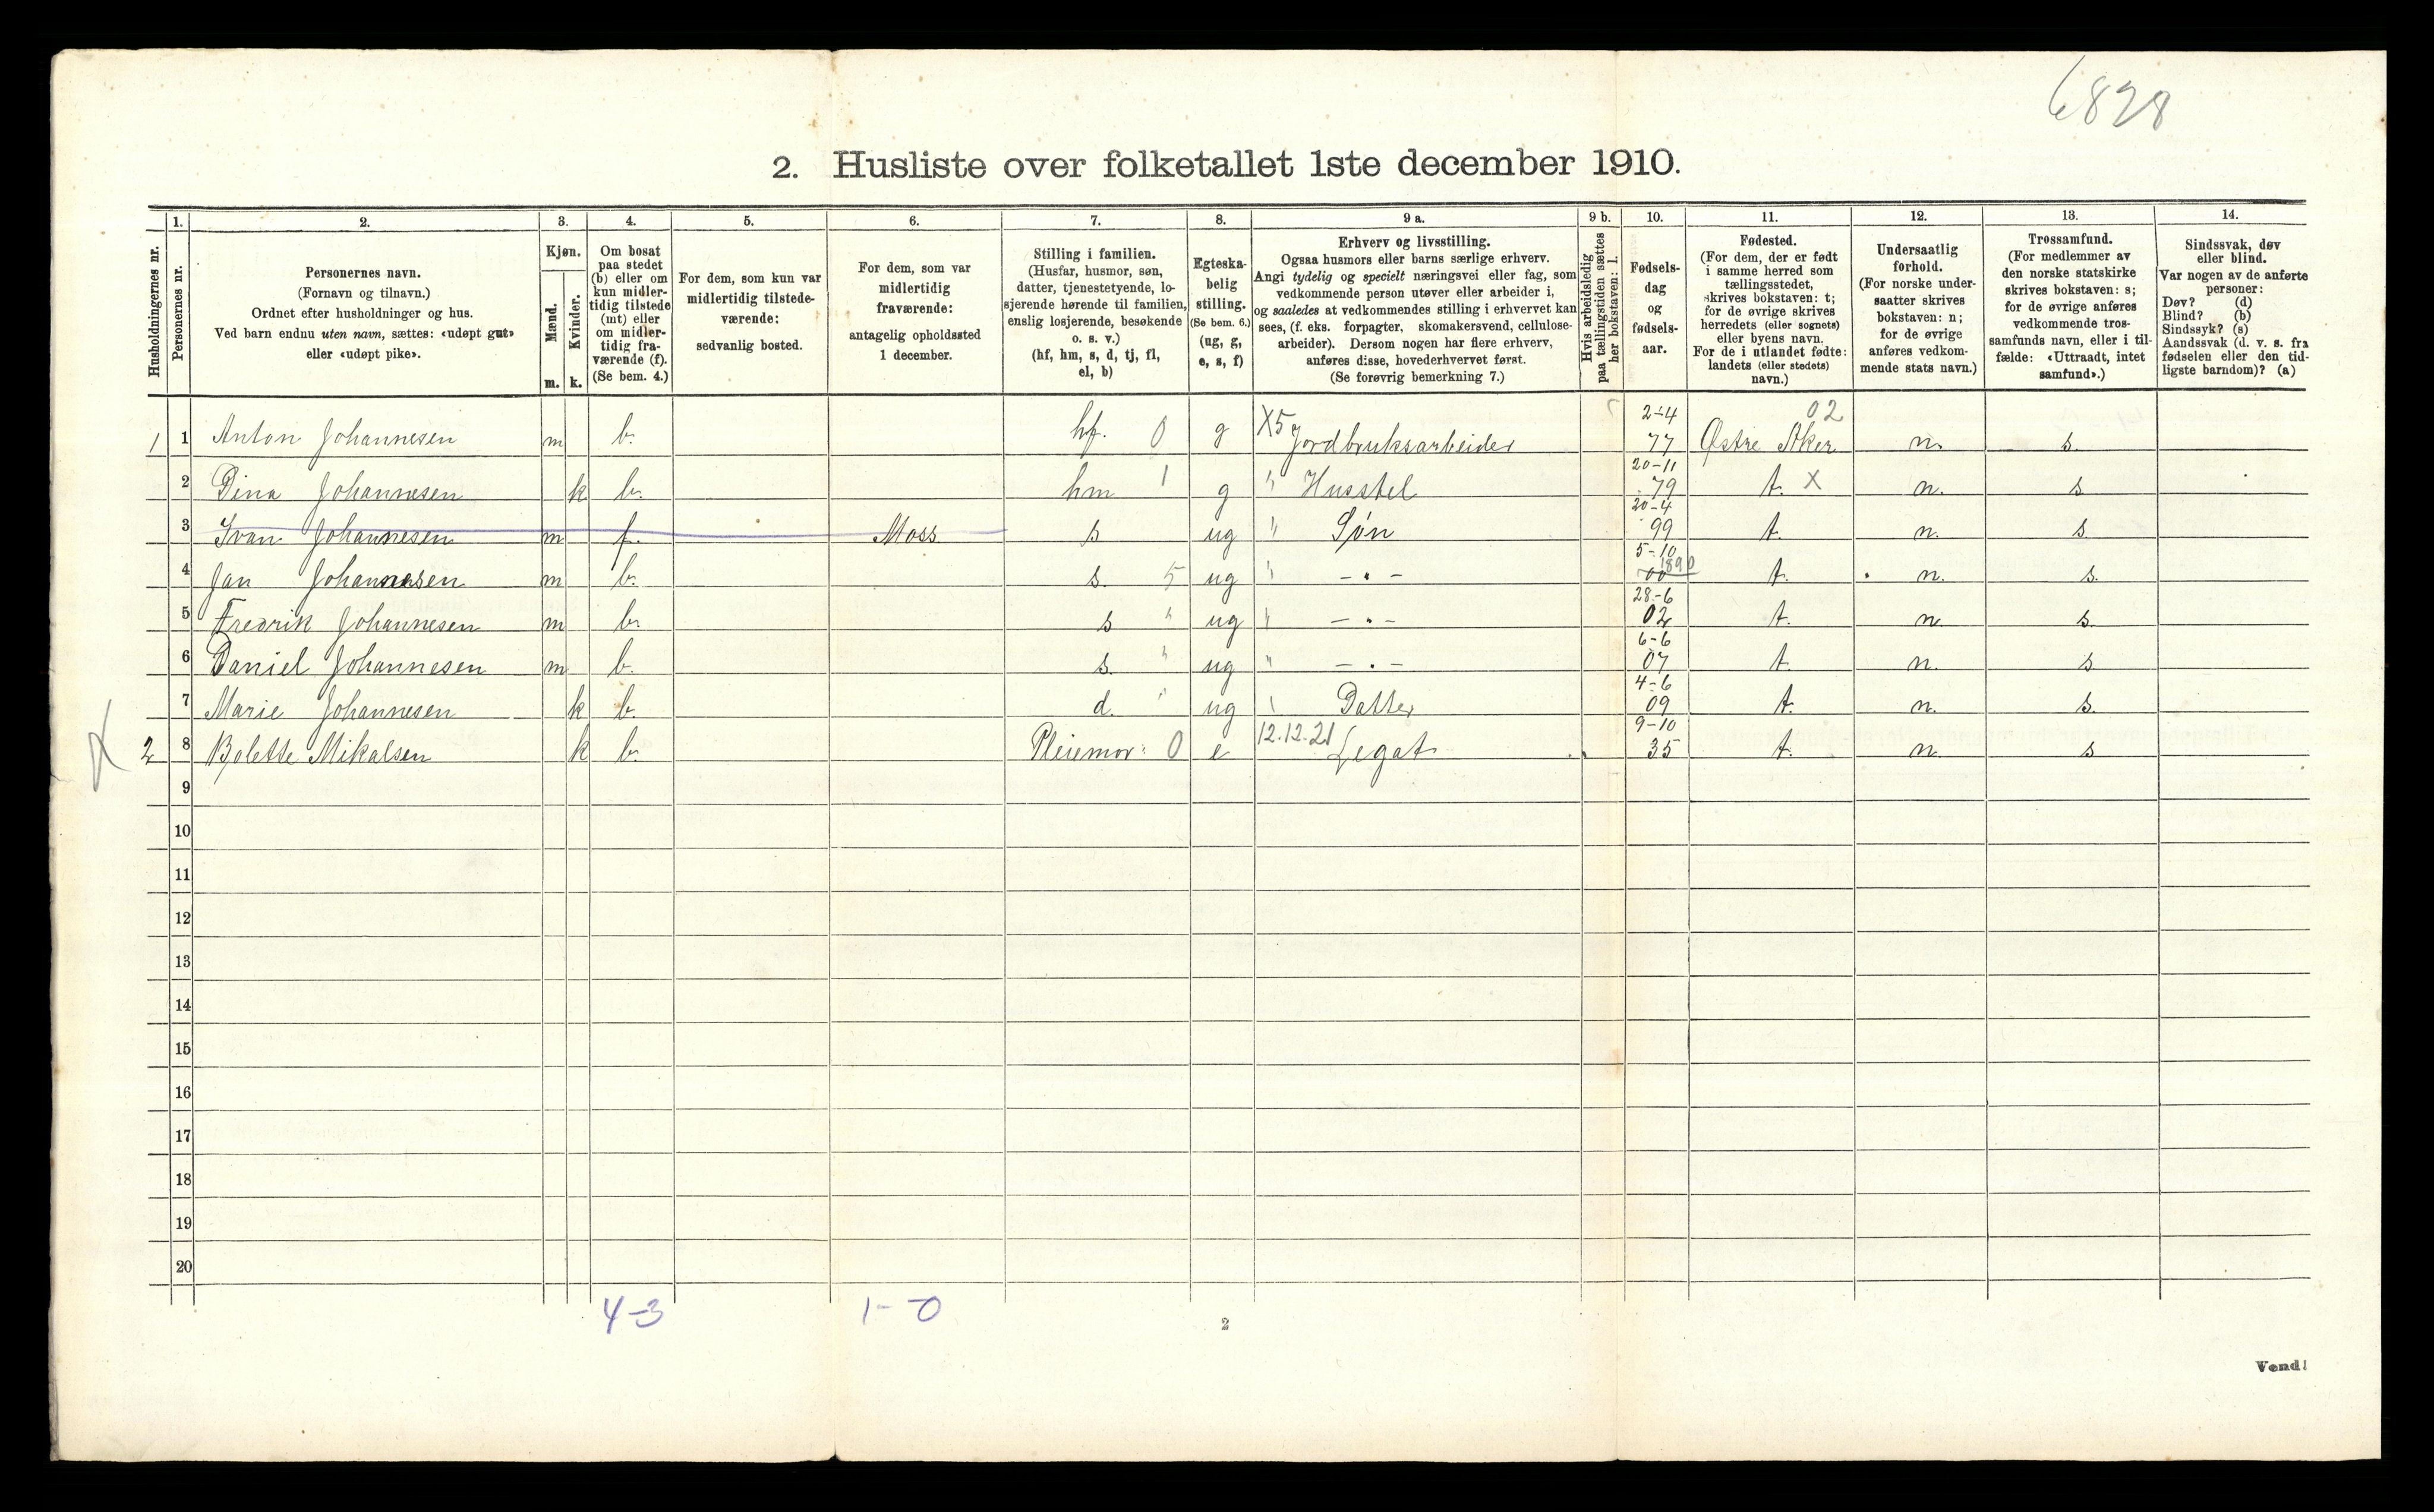 6828
2. Husliste over folketallet 1ste december 1910.
1. 2. 3. 4. 5. 6. 7. 8. 9 a. 9 b. 10. 11. 12. 13. 14.
Husholdningernes nr.
Personernes nr.
Personernes navn.
(Fornavn og tilnavn.)
Ordnet efter husholdninger og hus.
Ved barn endnu uten navn, sættes: «udøpt gut»
eller «udøpt pike».
Kjøn.
Mænd.
Kvinder.
m. k.
Om bosat
paa stedet
(b) eller om
kun midler-
tidig tilstede
(mt) eller
om midler-
tidig fra-
værende (f).
(Se bem. 4.)
For dem, som kun var
midlertidig tilstede-
værende:
sedvanlig bosted.
For dem, som var
midlertidig
fraværende:
antagelig opholdssted
1 december.
Stilling i familien.
(Husfar, husmor, søn,
datter, tjenestetyende, lo-
sjerende hørende til familien,
enslig losjerende, besøkende
o. s. v.)
(hf, hm, s, d, tj, fl,
el, b)
Egteska-
belig
stilling.
(Se bem. 6.)
(ug, g,
e, s, f)
Erhverv og livsstilling.
Ogsaa husmors eller barns særlige erhverv.
Angi tydelig og specielt næringsvei eller fag, som
vedkommende person utøver eller arbeider i,
og saaledes at vedkommendes stilling i erhvervet kan
sees, (f. eks. forpagter, skomakersvend, cellulose-
arbeider). Dersom nogen har flere erhverv,
anføres disse, hovederhvervet først.
(Se forøvrig bemerkning 7.)
Hvis arbeidsledig
paa tællingstiden sættes
her bokstaven: l.
Fødsels-
dag
og
fødsels-
aar.
Fødested.
(For dem, der er født
i samme herred som
tællingsstedet,
skrives bokstaven: t;
for de øvrige skrives
herredets (eller sognets)
eller byens navn.
For de i utlandet fødte:
landets (eller stedets)
navn.)
Undersaatlig
forhold.
(For norske under-
saatter skrives
bokstaven: n;
for de øvrige
anføres vedkom-
mende stats navn.)
Trossamfund.
(For medlemmer av
den norske statskirke
skrives bokstaven: s;
for de øvrige anføres
vedkommende tros-
samfunds navn, eller i til-
fælde: «Uttraadt, intet
samfund».)
Sindssvak, døv
eller blind.
Var nogen av de anførte
personer:
Døv? (d)
Blind? (b)
Sindssyk? (s)
Aandssvak (d. v. s. fra
fødselen eller den tid-
ligste barndom)? (a)
1 1 Anton Johannesen m b. hf. 0 g X5 Jordbruksarbeider 2-4 77 02 Østre Aker n. s.
2 Dina Johannesen k b. hm 1 g " Husstel 20-11 79 t. X n. s
3 Ivan Johannesen m f. Moss s ug " Søn 20-4 99 t. n. s.
4 Jan Johannesen m b. s. 5 ug " — " — 5-10 00 1890 t. n. s.
5 Fredrik Johannesen m b. s " ug " — " — 28-6 02 t. n. s.
6 Daniel Johannesen m b. s. " ug " — " — 6-6 07 t. n. s
7 Marie Johannesen k b. d. " ug " Datter 4-6 09 t. n. s.
X 2 8 Bolette Mikalsen k b. Pleiemor 0 e 12.12.21 Legat 9-10 35 t. n. s
9
10
11
12
13
14
15
16
17
18
19
20
4-3 1-0
2
Vend!